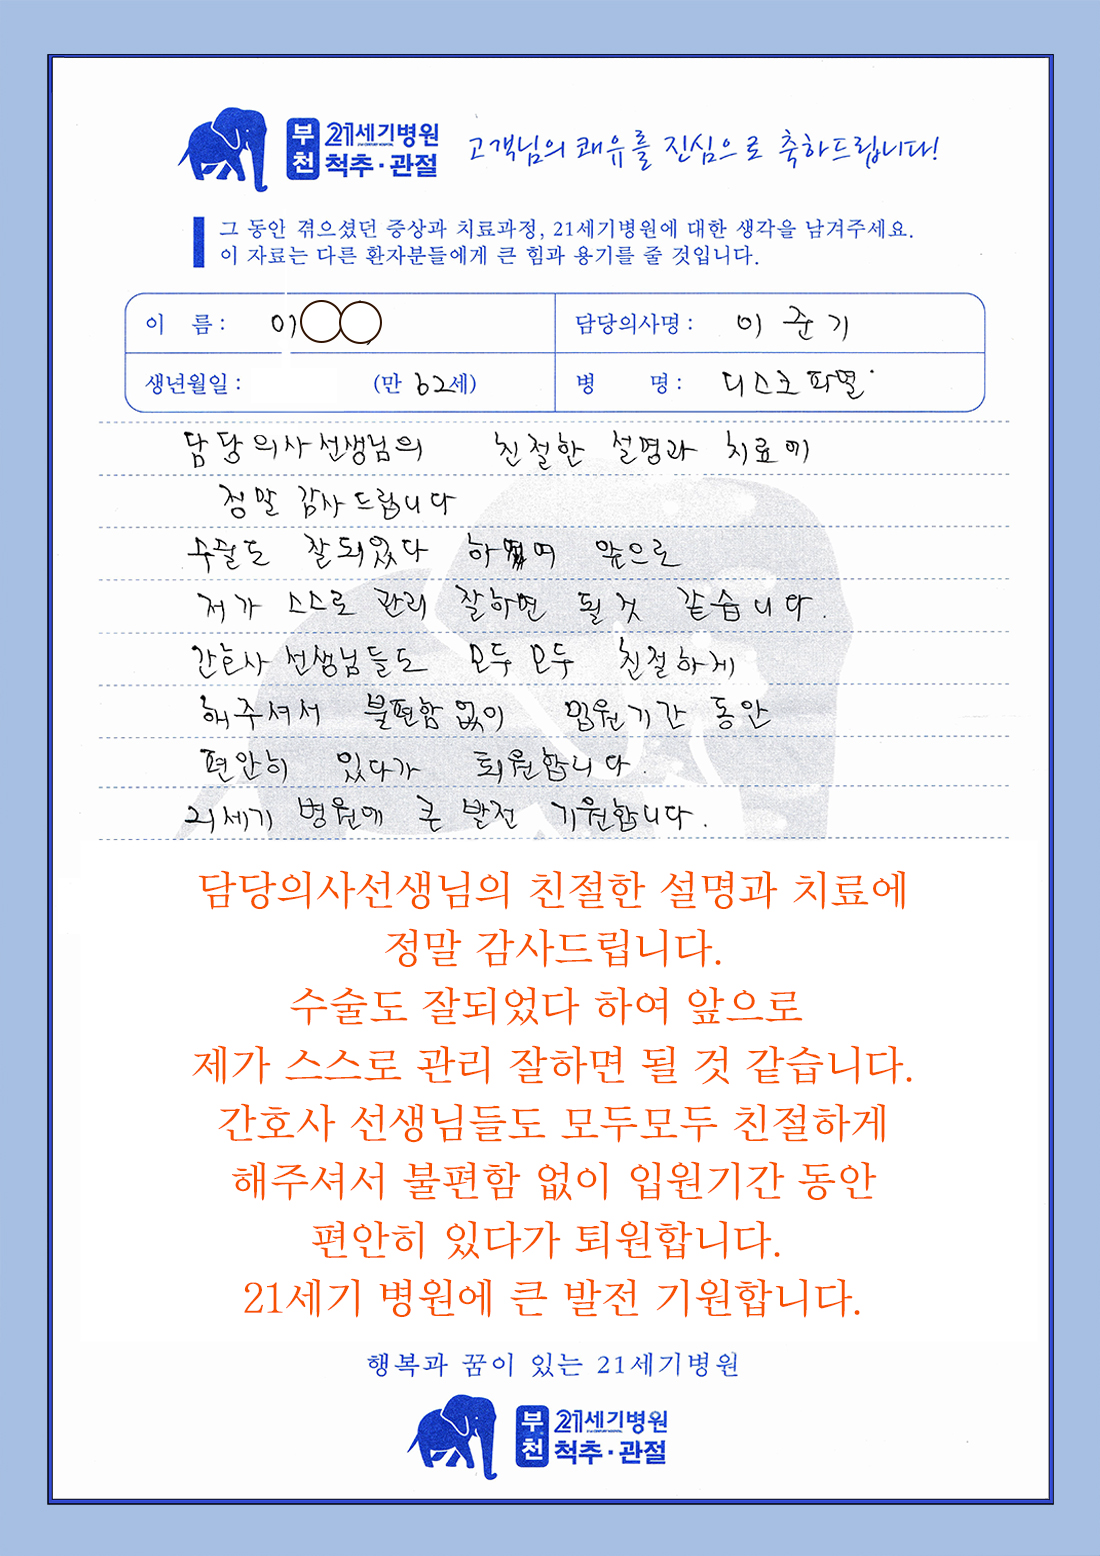 부천 21세기병원 척추·관절 고객님의 쾌유를 진심으로 축하드립니다!
그 동안 겪으셨던 증상과 치료과정, 21세기병원에 대한 생각을 남겨주세요.
이 자료는 다른 환자분들에게 큰 힘과 용기를 줄 것입니다.
이 름 : 이○○ 담당의사명 : 이준기
생년월일 : (만 62세) 병 명 : 디스크파열
담당의사선생님의 친절한 설명과 치료에
정말 감사드립니다
수술도 잘되었다 하여 앞으로
저가 스스로 관리 잘하면 될것 같습니다.
간호사 선생님들도 모두모두 친절하게
해주셔서 불편함없이 입원기간 동안
편안히 있다가 퇴원합니다.
21세기 병원에 큰 발전 기원합니다.
담당의사선생님의 친절한 설명과 치료에
정말 감사드립니다.
수술도 잘되었다 하여 앞으로
제가 스스로 관리 잘하면 될 것 같습니다.
간호사 선생님들도 모두모두 친절하게
해주셔서 불편함 없이 입원기간 동안
편안히 있다가 퇴원합니다.
21세기 병원에 큰 발전 기원합니다.
행복과 꿈이 있는 21세기병원
부천 21세기병원 척추·관절